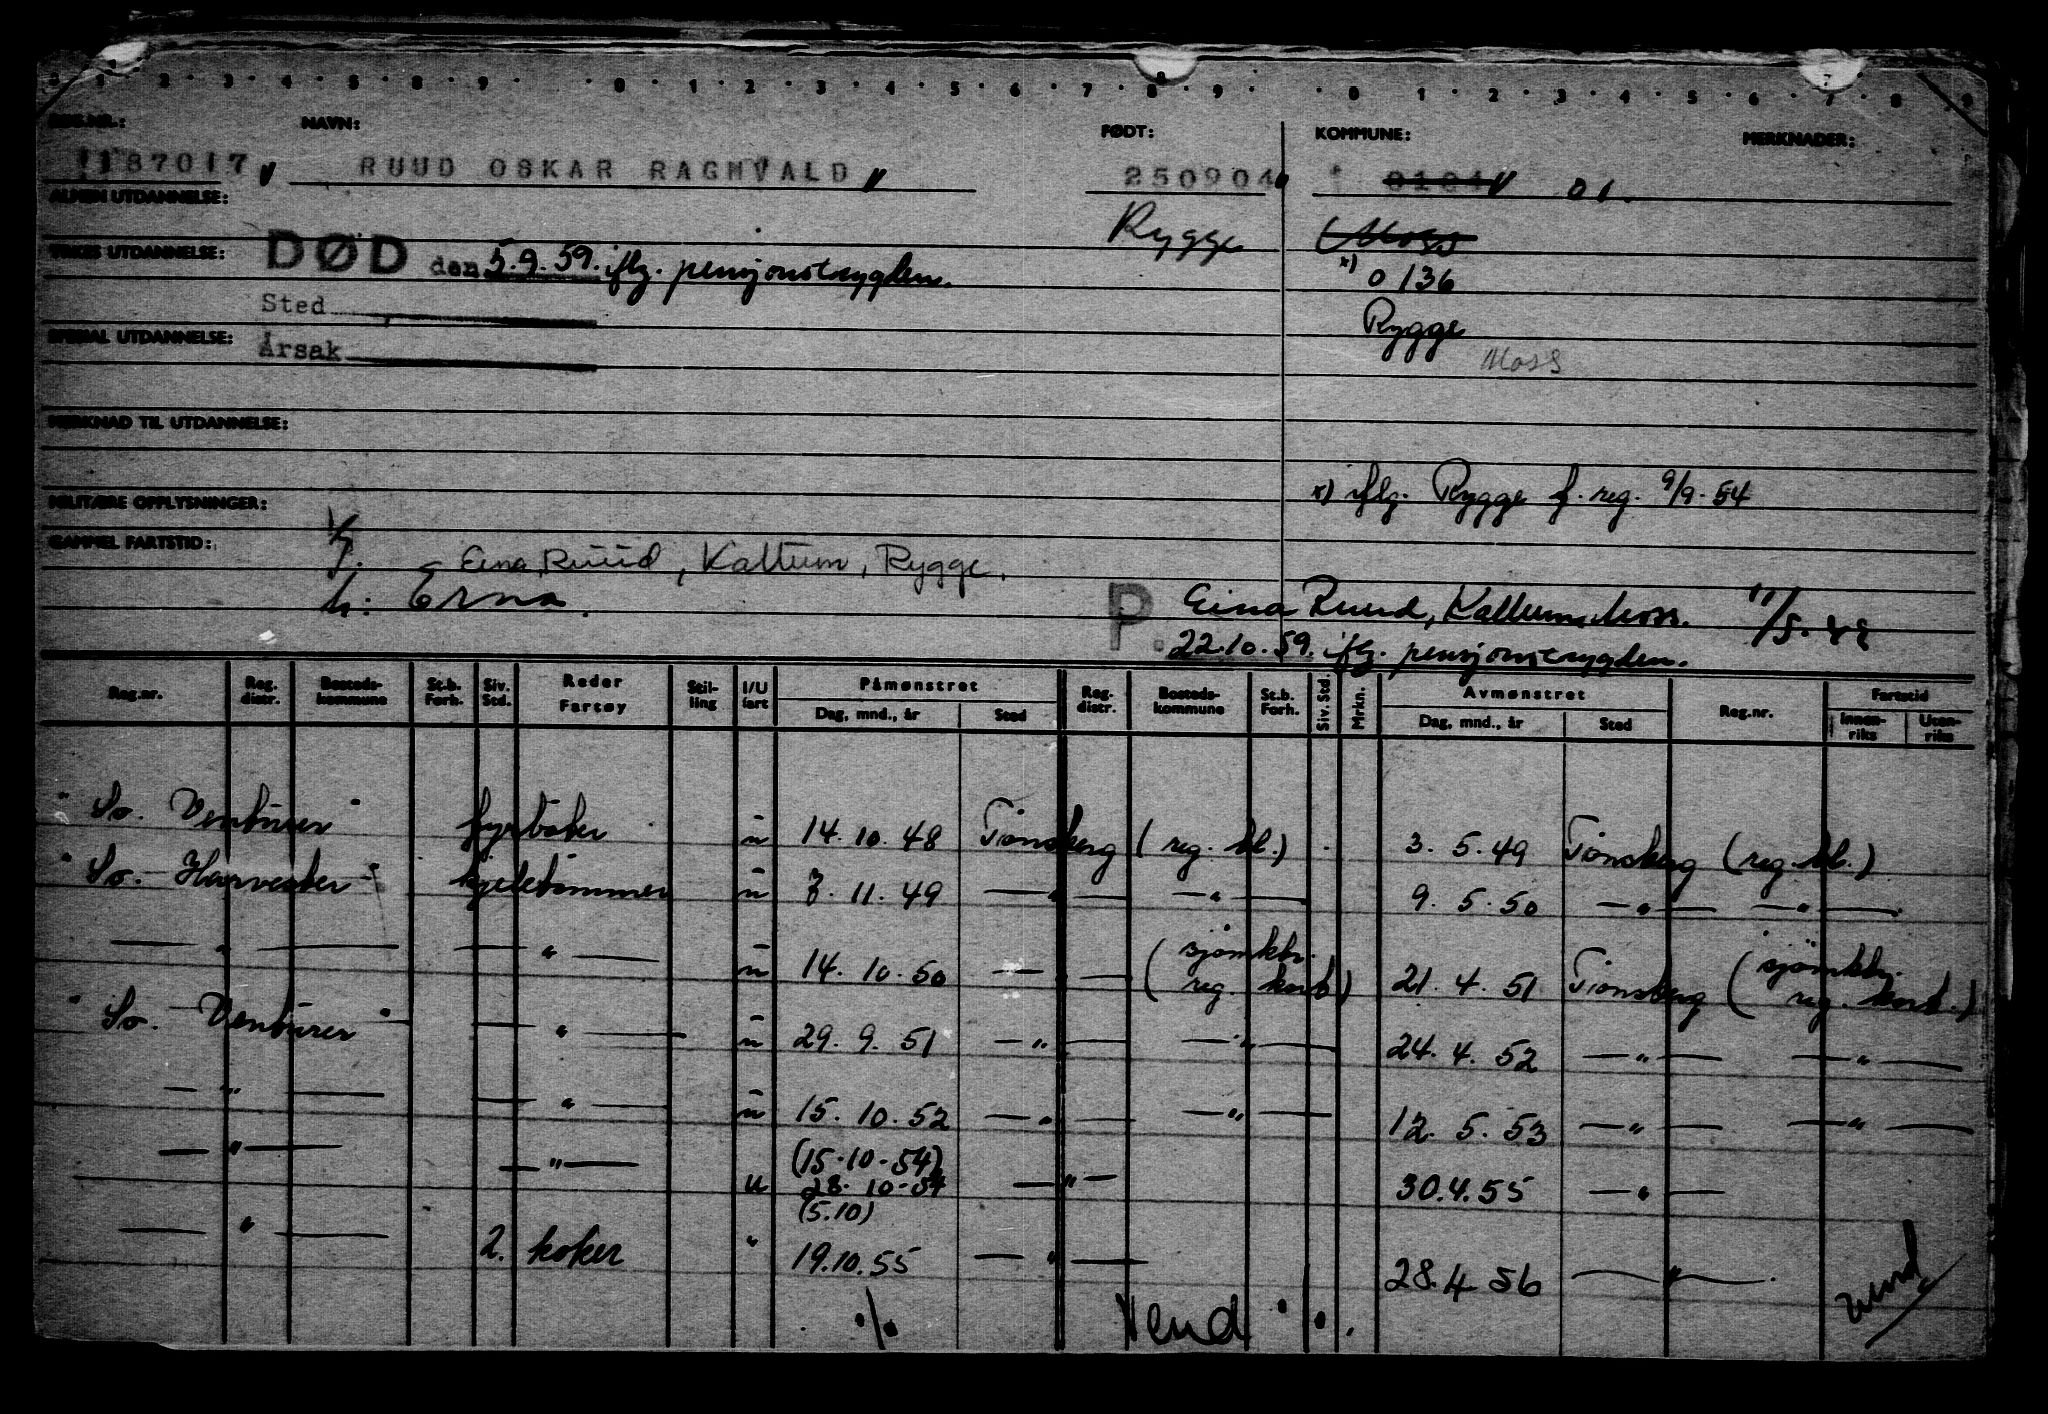 1 2 3 4 5 8 9 0 1 2 3 4 5 6 7 8 9 0 1 2 3 4 5 6 7 8 9
REG.NR.: NAVN: FØDT: KOMMUNE: MERKNADER:
1187017 RUUD OSKAR RAGNVALD 250904 0104 01.
ALMEN UTDANNELSE: Rygge Moss
YRKES UTDANNELSE: DØD den 5.9.59. iflg. pensjonstrygden. x) 0136
Sted Rygge
SPESIAL UTDANNELSE: Årsak Moss
MERKNAD TIL UTDANNELSE:
MILITÆRE OPPLYSNINGER: x) iflg. Rygge f. reg. 9/9.54
GAMMEL FARTSTID:
Eina Ruud, Kallum, Rygge.
h: Erna. P. Eina Ruud, Kallum, Moss. 11/5.49
22.10.59. iflg. pensjonstrygden.
Reg.nr. Reg. distr. Bosteds- kommune St.b. Forh. Siv. Std. Reder Fartøy Stil- ling I/U fart Påmønstret Reg. distr. Bosteds- kommune St.b. Forh. Siv. Std. Mrkn. Avmønstret Reg.nr. Fartstid
Dag, mnd., år Sted Dag, mnd., år Sted Innen- riks Uten- riks
"So. Venturer" fyrbøter u 14.10.48 Tønsberg (reg.bl.) 3.5.49 Tønsberg (reg.bl.)
"So. Harvester" kjeletømmer u 7.11.49 —"— —"— 9.5.50 —"— —"—
—"— —"— u 14.10.50 —"— (sjømktr. reg. kort) 21.4.51 Tønsberg (sjømktr. reg. kort.)
"So. Venturer" —"— u 29.9.51 —"— —"— 24.4.52 —"— —"—
—"— —"— u 15.10.52 —"— —"— 12.5.53 —"— —"—
—"— —"— u (15.10.54) 28.10.54 —"— 30.4.55 —"—
(5.10)
—"— 2. koker " 19.10.55 —"— 28.4.56 —"—
./. Vend